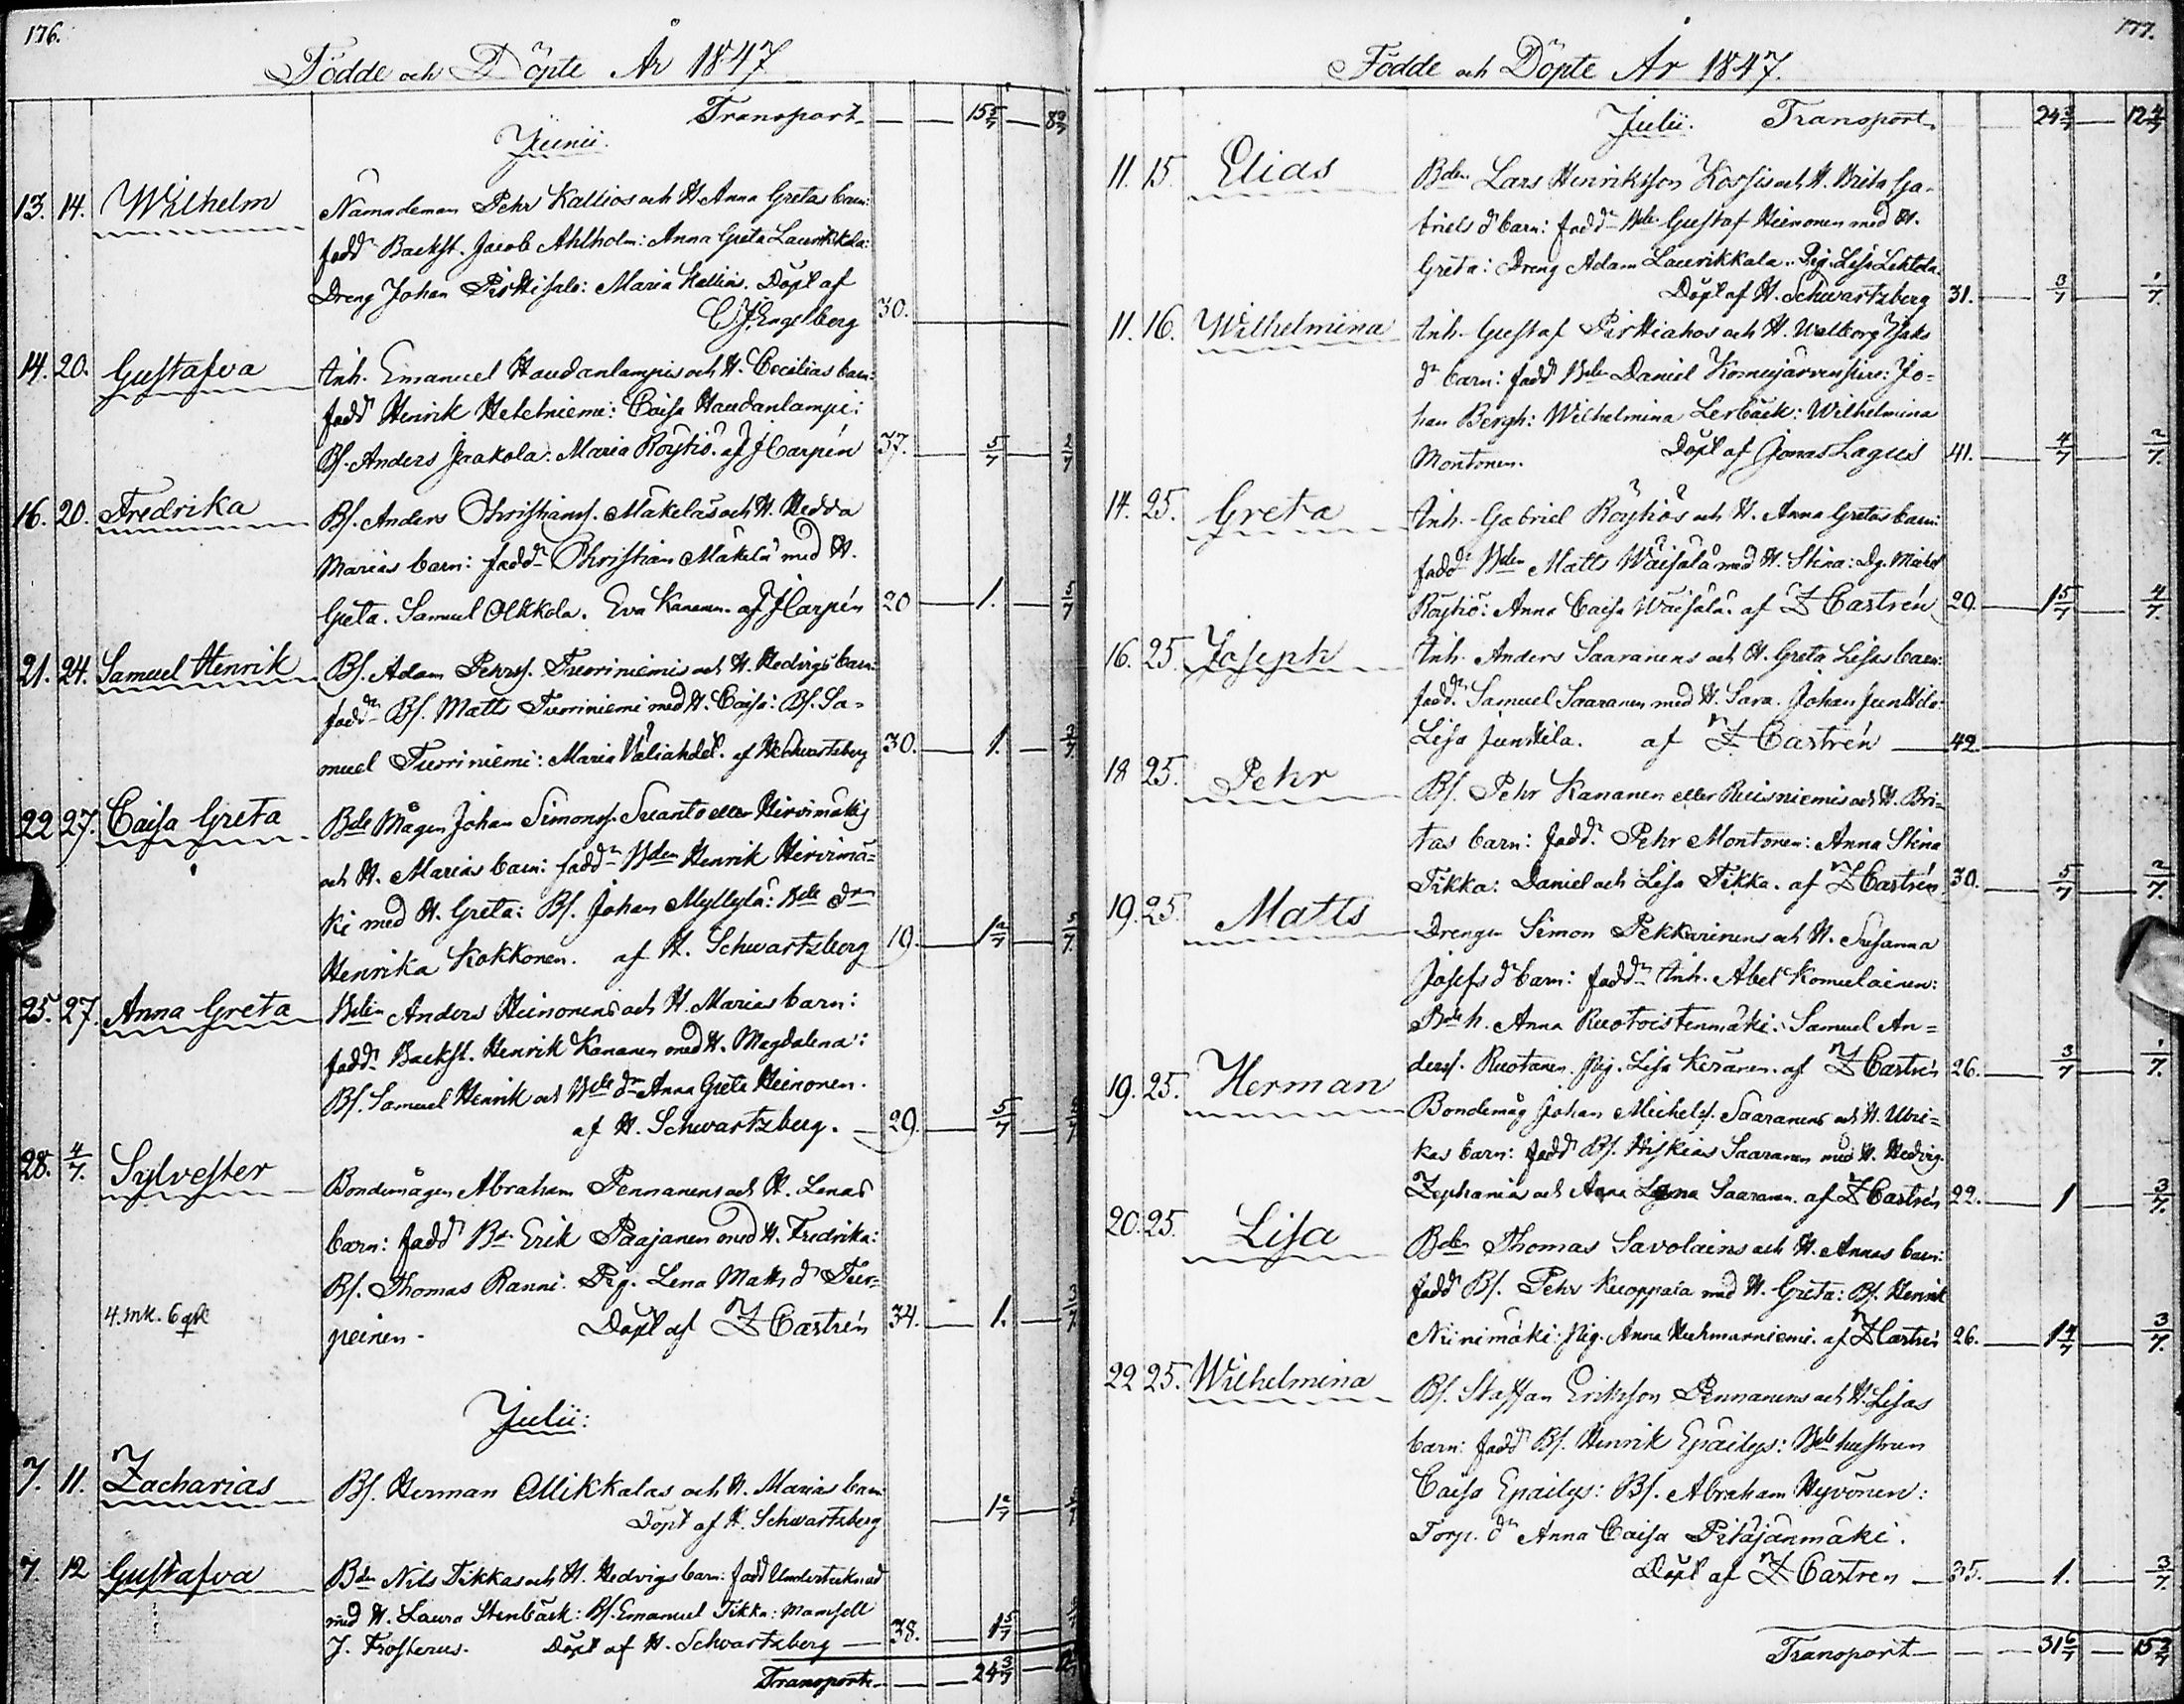 176.
Födde och Döpte År 1847
Transport 15 5/7
Junii.
13. 14. Wilhelm Nämndeman Pehr Kallios och H. Anna Gretas barn:
fadd. Backst. Jacob Ahlholm: Anna Greta Laurikkala:
Dreng Johan Pirttisalo: Maria Kallio. Döpt af
Engelberg 30.
14. 20. Gustafva Inh. Emanuel Haudanlampis och H. Cecilias barn:
fadd. Henrik Hetelniemi: Caisa Haudanlampi:
Bs. Anders Jaakola: Maria Röytiö. af J Carpén 37. 5/7 2/7
16. 20. Fredrika Bs. Anders Christians. Mäkeläs och H. Hedda
Marias barn: fadd. Christian Mäkelä med H.
Greta. Samuel Olkkola. Eva Kananen. af J Carpén 20 1. 3/7
21. 24. Samuel Henrik Bs. Adam Pehrs. Tuoriniemis och H. Hedvigs barn:
fadd. Bs. Matts Tuoriniemi med H. Caisa: Bs. Sa=
muel Tuoriniemi: Maria af H Schwartzberg 30. 1. 3/7
22 27. Caisa Greta Bde Mågen Johan Simons. Suanto eller Hirvimäkis
och H. Marias barn: fadd. Bden Henrik Hirvimä=
ki med H. Greta: Bs. Johan Myllylä: Bde dr
Henrika Kokkonen. af H. Schwartzberg 19. 1 2/7 3/7
25. 27. Anna Greta Bden Anders Heinonens och H. Marias barn:
fadd. Backst. Henrik Kananen med H. Magdalena:
Bs. Samuel Henrik och Bde dr Anna Greta Heinonen.
af H. Schwartzberg. 29. 5/7
28. 4/7. Sylvester Bondemågen Abraham Pennanens och H. Lenas
barn: fadd. Bd. Erik Paajanen med H. Fredrika:
Bs. Thomas Ranni. Pig. Lena Matts dr Tur=
4. mk. 6 qrt peinen. Döpt af Z Castrén 34. 1. 3/7
Julii:
7. 11. Zacharias Bs. Herman Ollikkalas och H. Marias barn
Döpt af H. Schwartzberg 1 2/7
7. 12 Gustafva Bden Nils Tikkas och H. Hedvigs barn: fadd. Undertecknad
med H. Laura Stenbäck: Bs. Emanuel Tikka: Mamsell
J. Frosterus. Döpt af H. Schwartzberg 38. 1 5/7
Transport 24 3/7
177.
Födde och Döpte År 1847.
Julii. Transport 24 3/7 12 4/7
11. 15. Elias Bden Lars Henriksson Kossis och H. Brita Ga=
briels dr barn: fadd. Bde Gustaf Heinonen med H.
Greta: Dreng Adam Laurikkala. Pig. Lisa Lehtola.
Döpt af H. Schwartzberg 31. 3/7 1/7
11. 16. Wilhelmina Inh. Gustaf Pirttiahos och H. Walborg Isaks
dr barn: fadd. Bde Daniel Komujärvensuu: Jo=
han Bergh: Wilhelmina Lerbäck: Wilhelmina
Montonen. Döpt af Jonas Lagus 41. 4/7 2/7.
14. 25. Greta Inh. Gabriel Röytiös och H. Anna Gretas barn:
fadd. Bden Matts Wäisälä med H. Stina: Dg. Michel
Röytiö: Anna Caisa Wäisälä. af Z Castrén 29. 1 5/7 4/7.
16. 25. Joseph Inh. Anders Saaranens och H. Greta Lisas barn:
fadd. Samuel Saaranen med H. Sara. Johan Junttila:
Lisa Junttila. af Z Castrén 42
18 25. Pehr Bs. Pehr Kananen eller Ruisniemis och H. Bri=
tas barn: fadd. Pehr Montonen: Anna Stina
Tikka: Daniel och Lisa Tikka. af Z Castrén 30. 5/7 2/7.
19. 25. Matts Drengen Simon Pekkarinens och H. Susanna
Josefs dr barn: fadd. Inh. Abel Komulainen:
Bde h. Anna Ruotoistenmäki: Samuel An=
derss. Ruotanen. Pig. Lisa Keränen. af Z Castrén 26. 3/7 1/7.
19. 25. Herman Bondemåg Johan Michels. Saaranens och H. Ulri=
kas barn: fadd. Bs. Hiskias Saaranen med H. Hedvig.
Zephania och Anna Lena Saaranen. af Z Castrén 22. 1 3/7.
20. 25. Lisa Bden Thomas Savolains och H. Annas barn:
fadd. Bs. Pehr Kuoppala med H. Greta: Bs. Henrik
Niinimäki: Pig. Anna Huhmarniemi. af Z Castrén 26. 1 4/7 3/7.
22 25. Wilhelmina Bs. Staffan Eriksson Pennanens och H. Lisas
barn: fadd. Bs. Henrik Epäilys: Bde hustrun
Caisa Epäilys: Bs. Abraham Hyvönen:
Torp. dr Anna Caisa Pitäjänmäki.
Döpt af Z Castren 35. 1. 3/7.
Transport 31 6/7 15 2/7